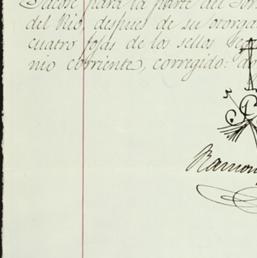 Sacose para la parte del Sor
del Rio, despues de su otorga
cuatro fojas de los sellos
mo corriente, corregido: do
Ramon